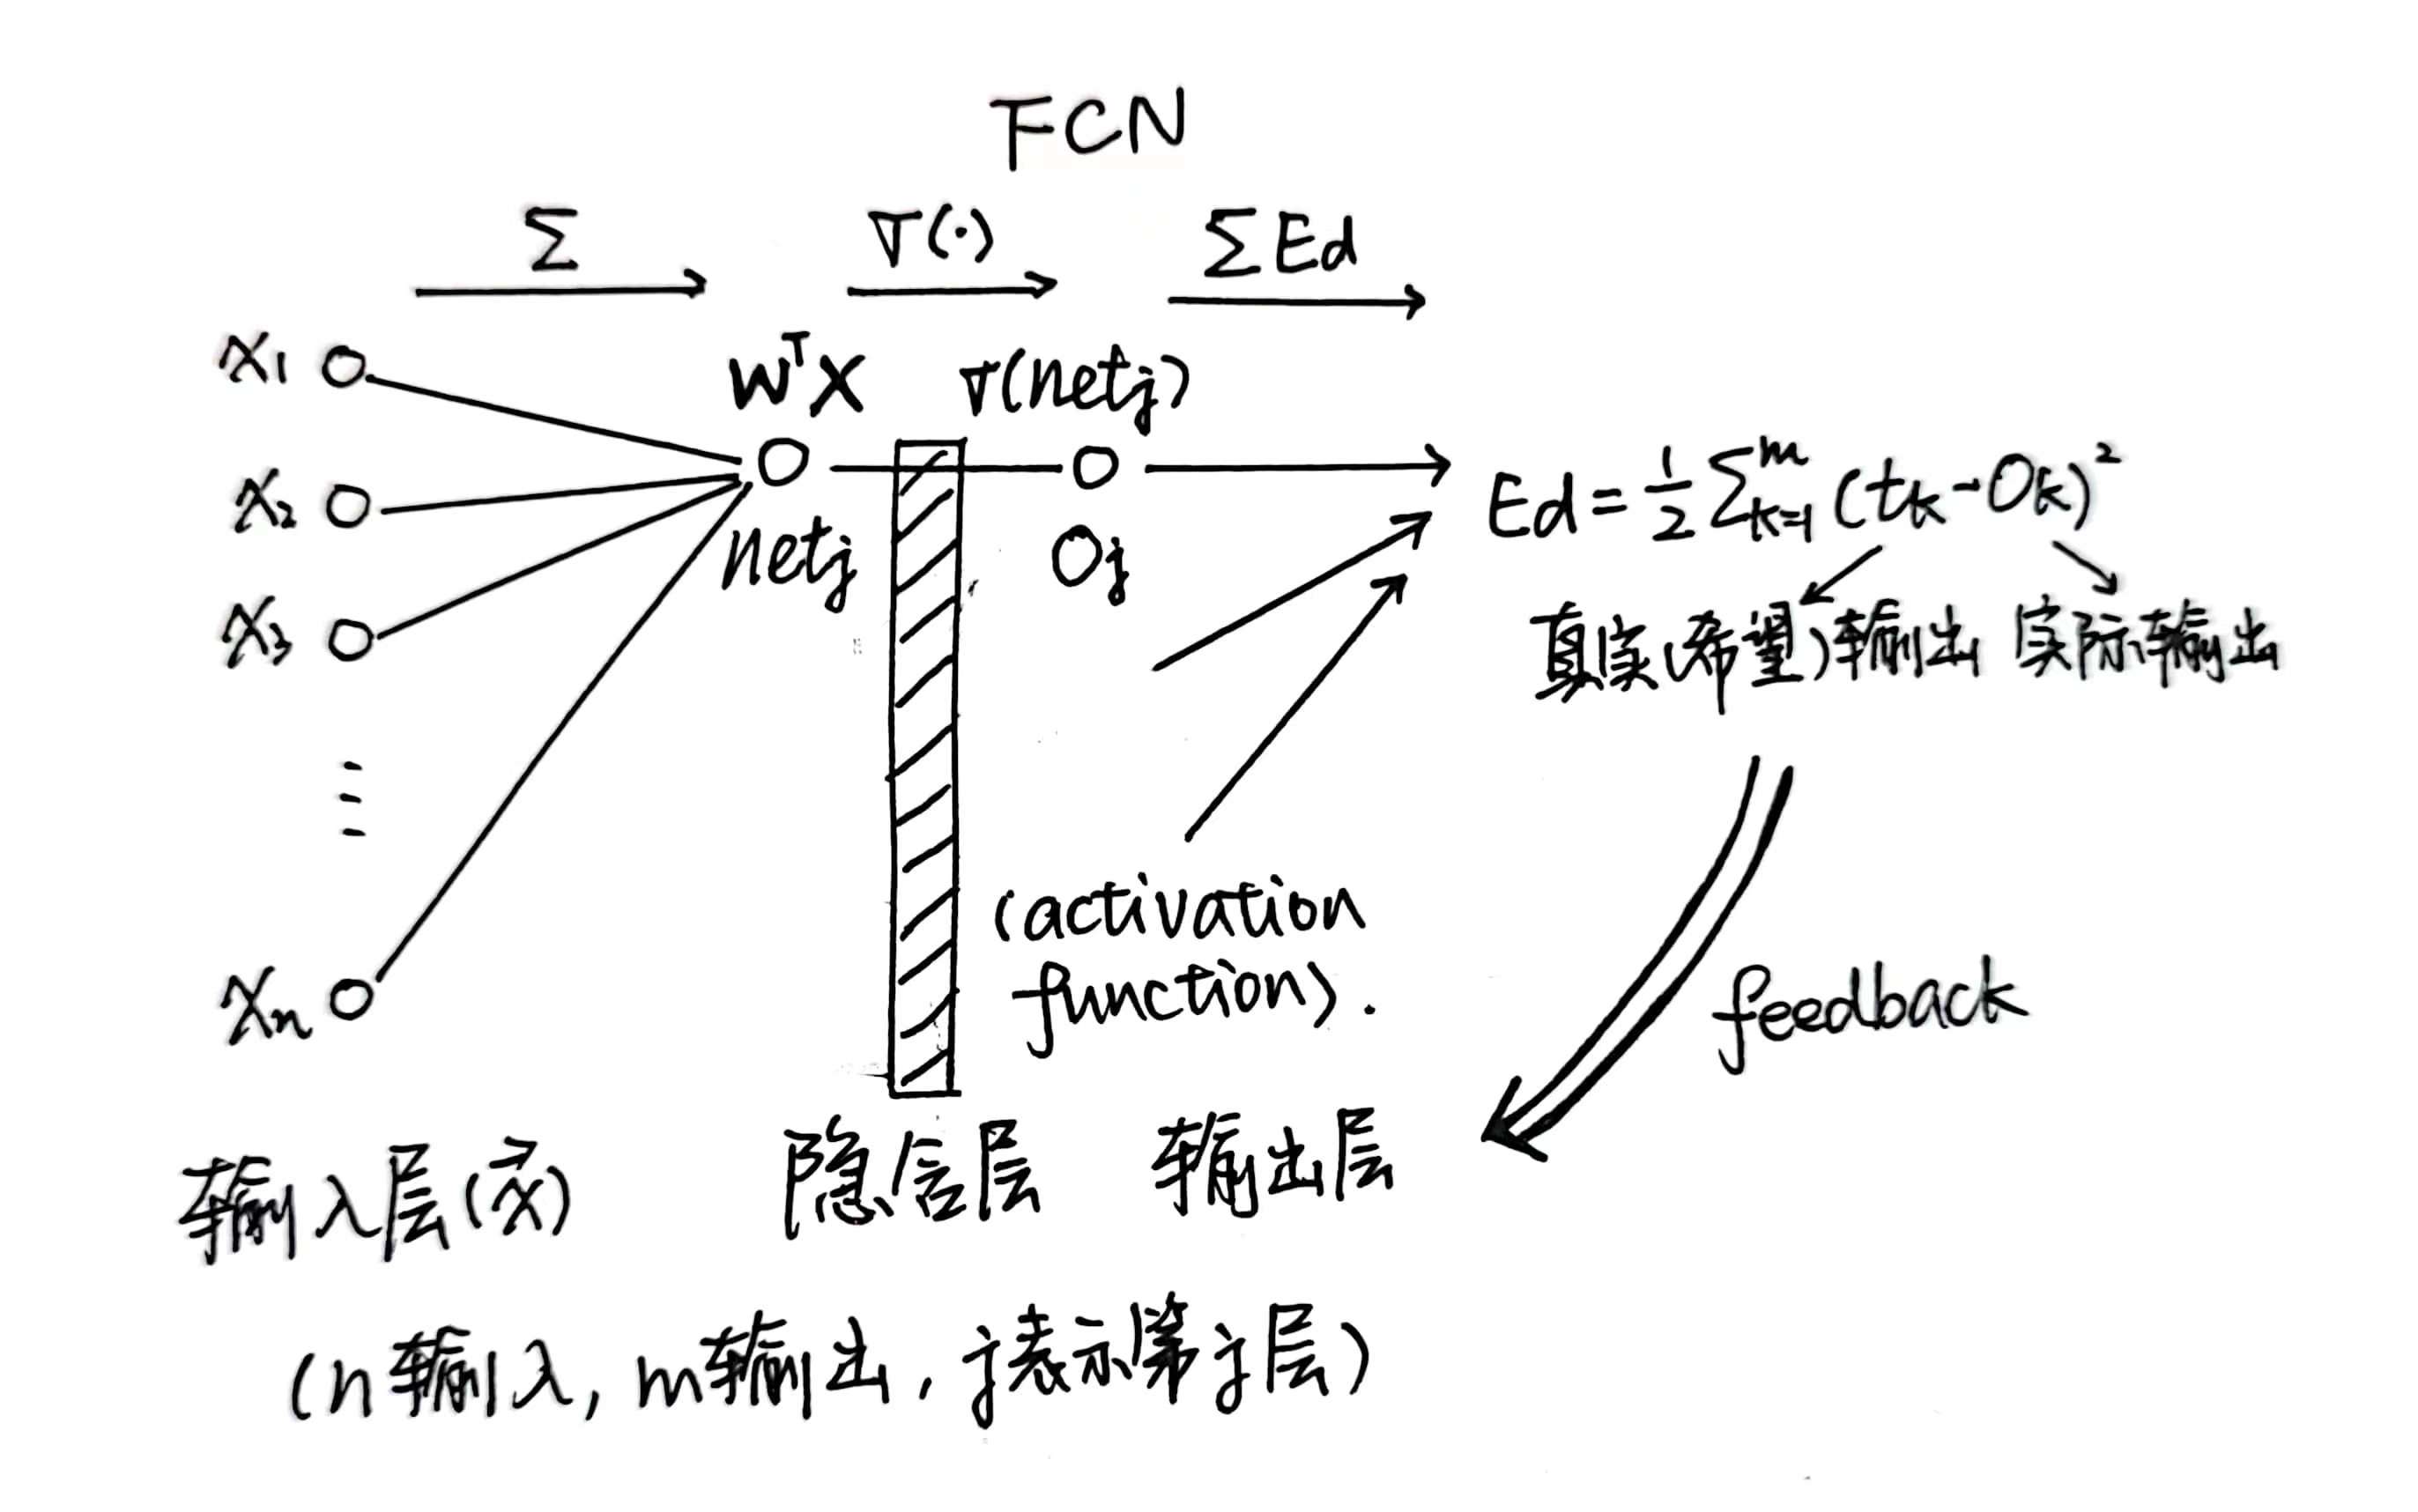 FCN
Σ σ(·) ΣEd
x₁ WᵀX σ(netj)
x₂ netj Oj Ed = ½ Σₖ₌₁ᵐ (tk - Ok)²
x₃ 真实(希望)输出 实际输出
⋮
(activation
function).
xn feedback
输入层(x⃗) 隐含层 输出层
(n输入, m输出, j表示第j层)